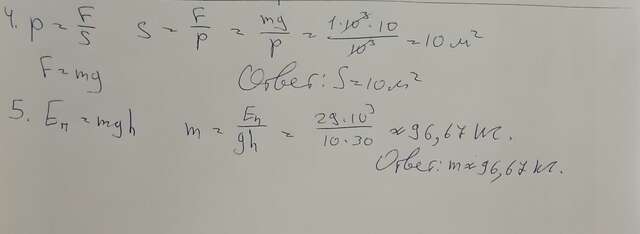 4. p = F/S S = F/p = mg/p = 1·10³·10/10³ = 10 м²
F = mg Ответ: S = 10 м²
5. Eп = mgh m = Eп/gh = 29·10³/10·30 ≈ 96,67 кг.
Ответ: m ≈ 96,67 кг.